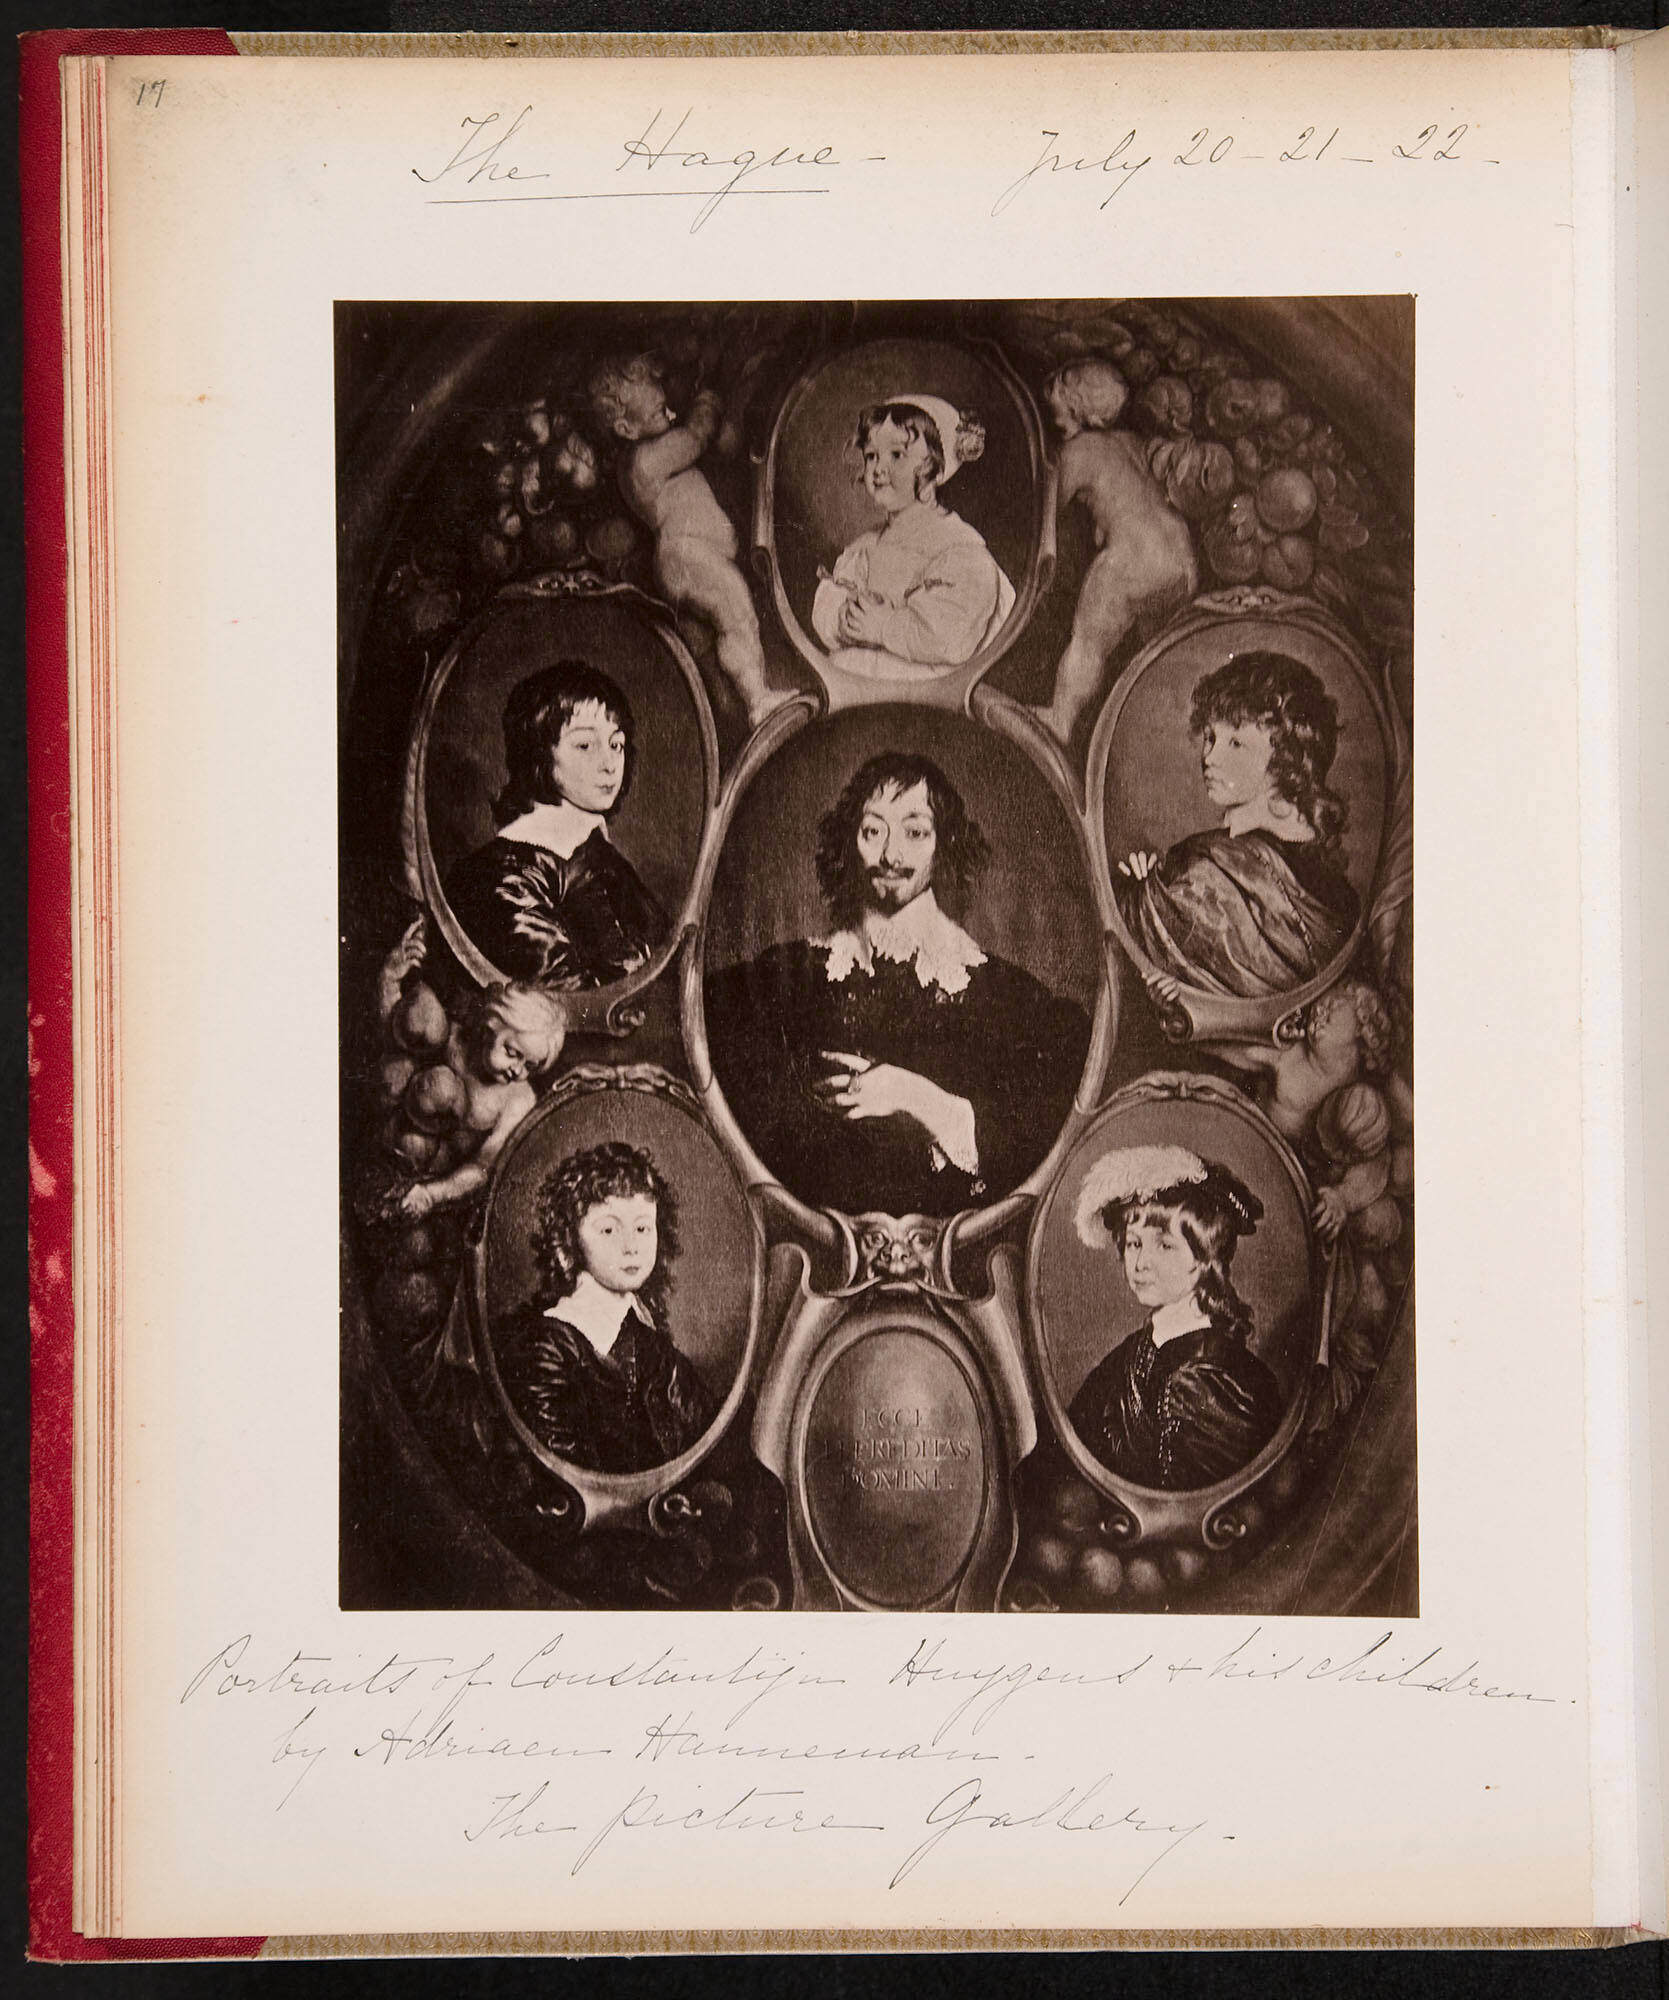 17
The Hague - July 20 - 21 - 22 -
ECCE
HEREDITAS
DOMINI.
Portraits of Constantijn Huygens & his children.
by Adriaen Hanneman -
The picture Gallery -